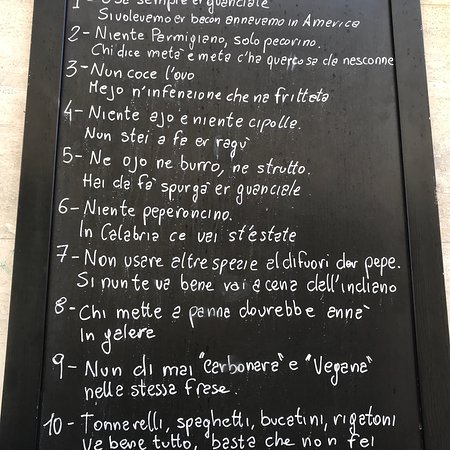 1- Usa sempre er guanciale
Si volevamo er bacon annavamo in America
2- Niente Parmigiano, solo pecorino.
Chi dice metà e metà c'ha quarcosa da nesconne
3- Nun coce l'ovo
Mejo n'infenzione che na frittata
4- Niente ajo e niente cipolla.
Nun stai a fa er ragù
5- Ne ojo ne burro, ne strutto.
Hai da fà spurgà er guanciale
6- Niente peperoncino.
In Calabria ce vai st'estate
7- Non usare altre spezie al difuori der pepe.
Si punte va bene vai a cena dell'indiano
8- Chi mette a panna dovrebbe annà
In galera
9- Nun di mai "carbonara" e "Vegana"
nella stessa frase.
10- Tonnarelli, spaghetti, bucatini, rigatoni
Va bene tutto, basta che non fai